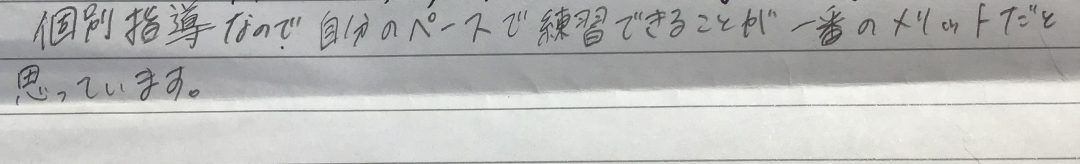 個別指導なので自分のペースで練習できることが一番のメリットだと
思っています。